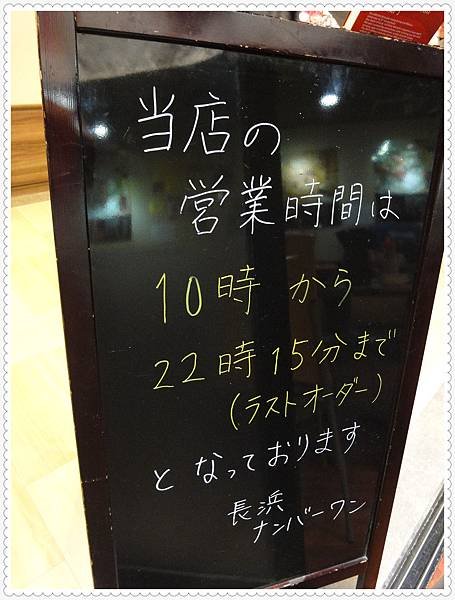 当店の
営業時間は
10時から
22時15分まで
(ラストオーダー)
となっております
長浜
ナンバーワン